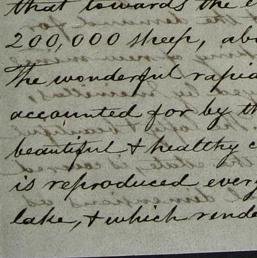 that towards the e
200,000 sheep, abo
The wonderful rapid
accounted for by th
beautiful & healthy c
is reproduced every
lake, & which rende